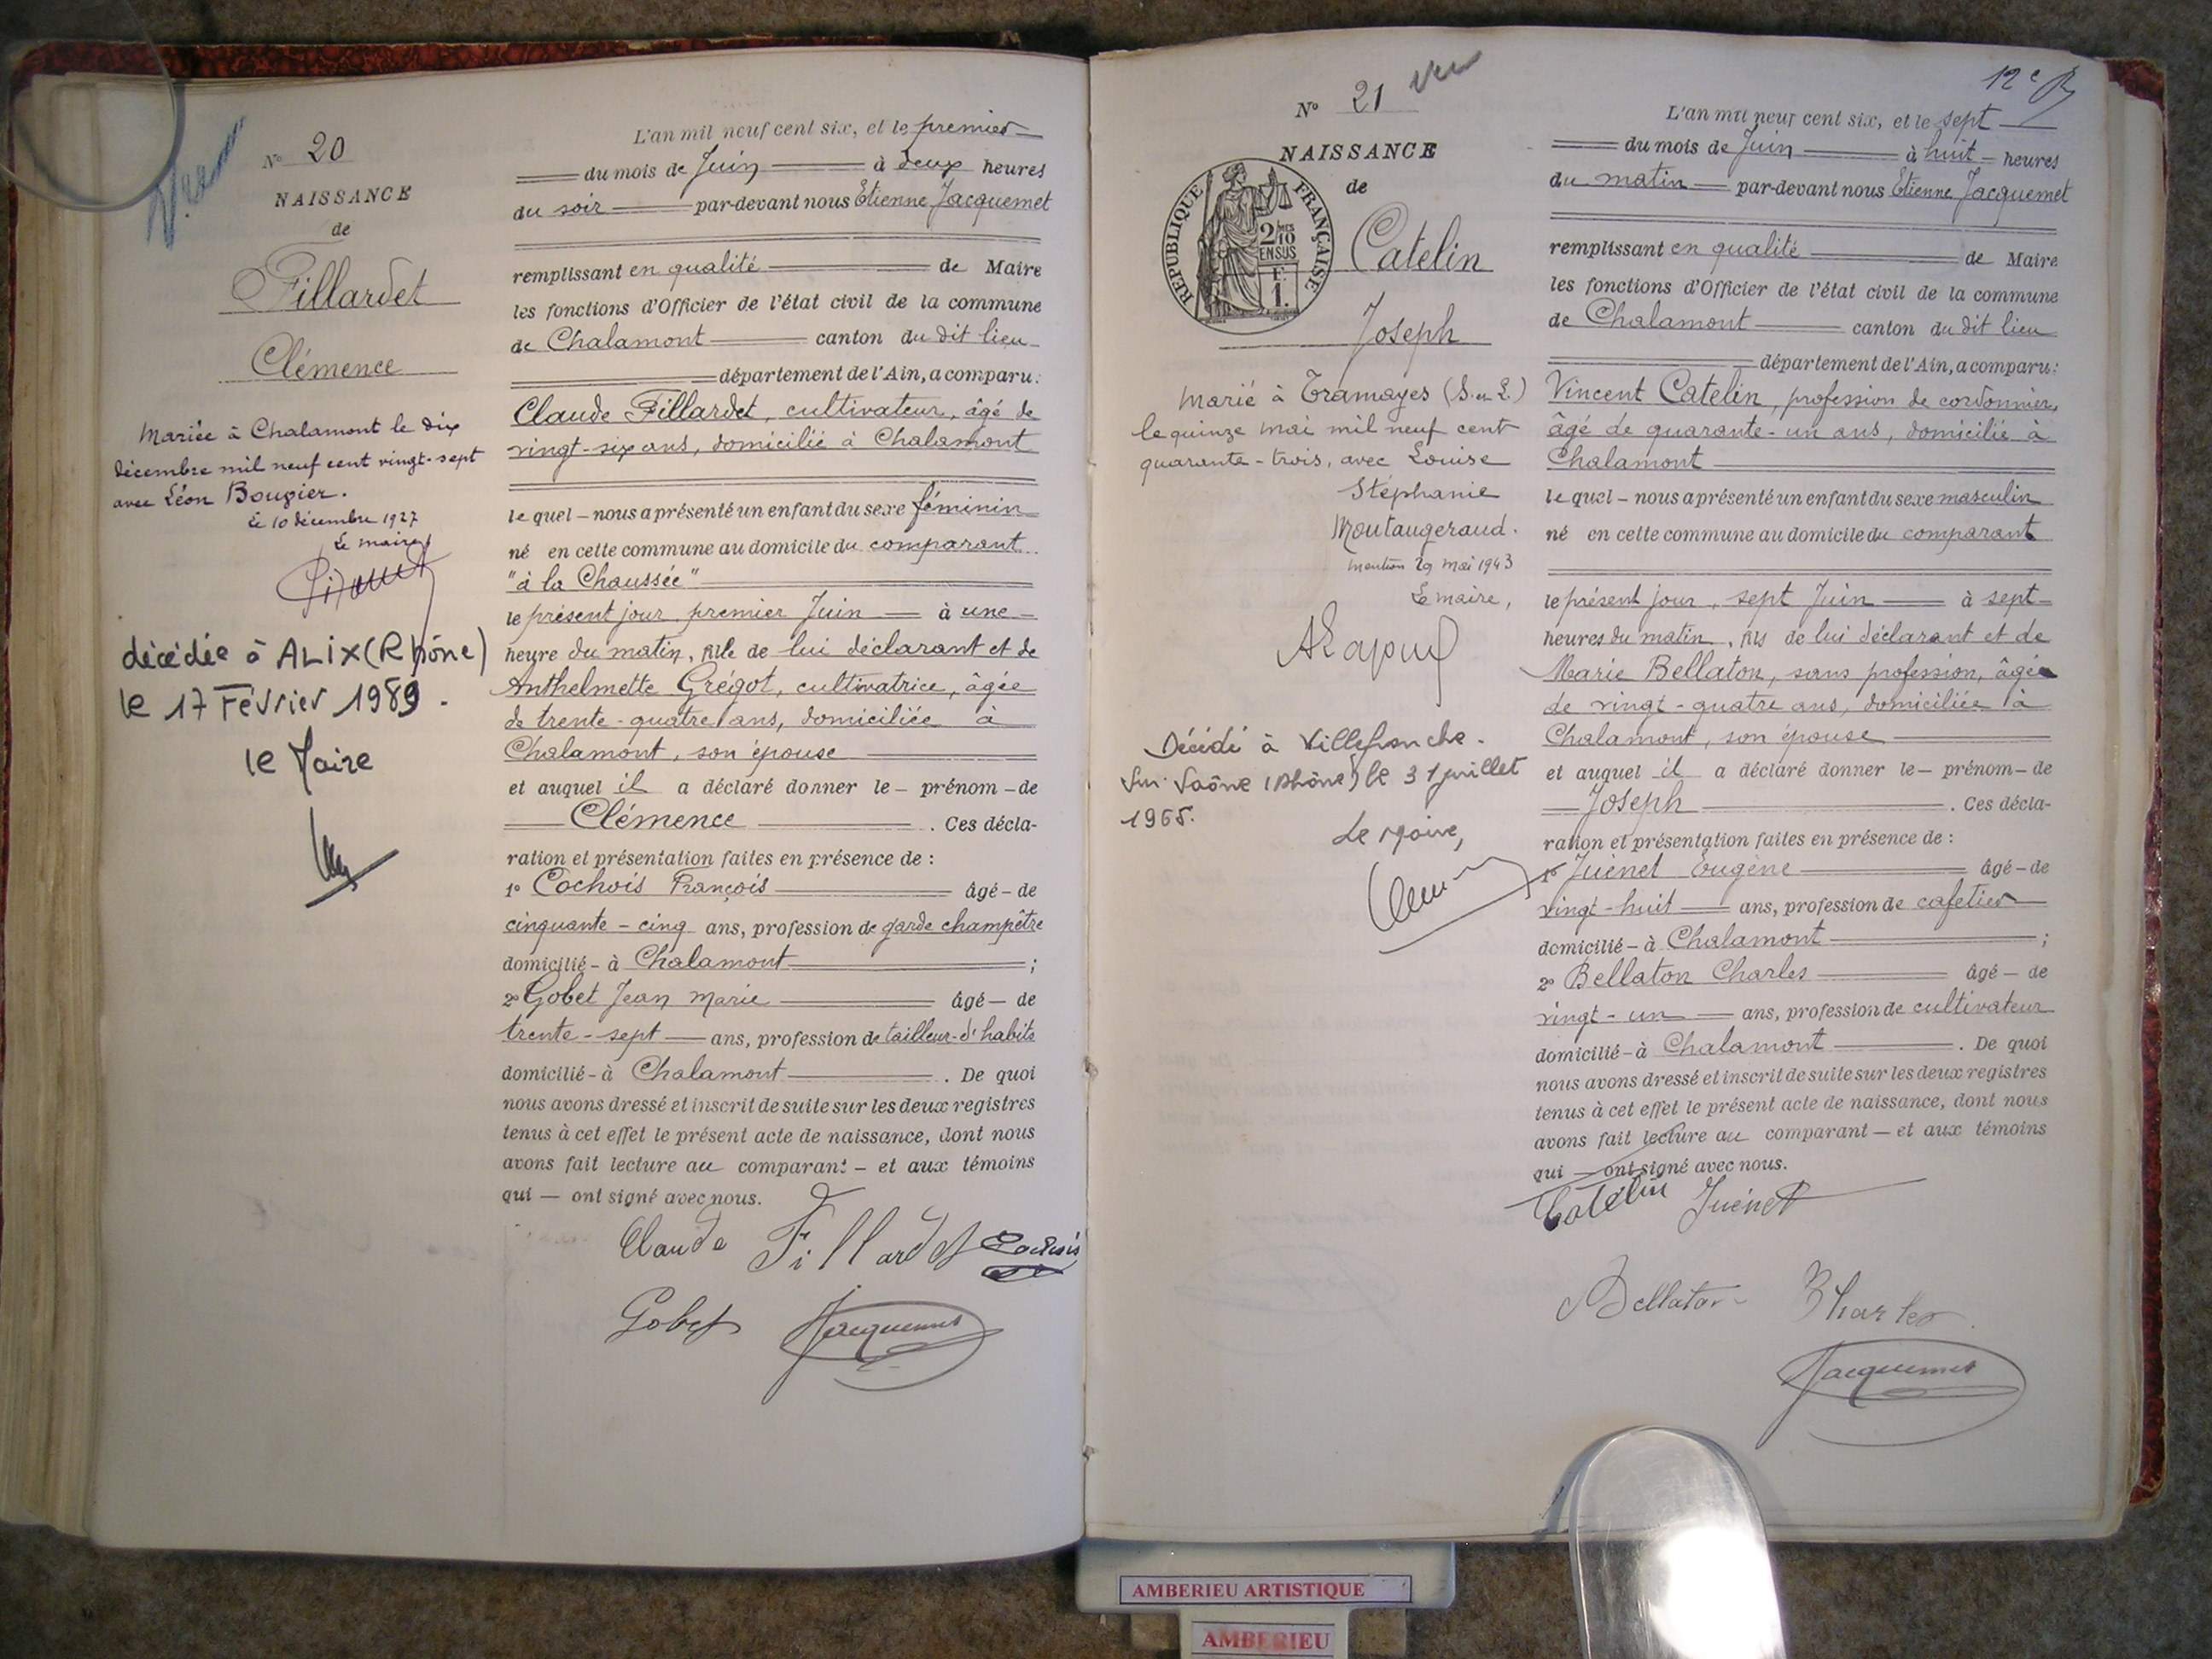 N° 20
NAISSANCE
de
Fillardet
Clémence
Mariée à Chalamont le dix
décembre mil neuf cent vingt-sept
avec Léon Bougier.
Le 10 décembre 1927
Le maire
décédée à ALIX (Rhône)
le 17 Février 1989.
le Maire
L'an mil neuf cent six, et le premier
du mois de Juin à deux heures
du soir par-devant nous Etienne Jacquemet
remplissant en qualité de Maire
les fonctions d'Officier de l'état civil de la commune
de Chalamont canton du dit lieu
département de l'Ain, a comparu:
Claude Fillardet, cultivateur, âgé de
vingt-six ans, domicilié à Chalamont
le quel – nous a présenté un enfant du sexe féminin
né en cette commune au domicile du comparant
"à la Chaussée"
le présent jour, premier Juin à une
heure du matin, fille de lui déclarant et de
Anthelmette Grégot, cultivatrice, âgée
de trente-quatre ans, domiciliée à
Chalamont, son épouse
et auquel il a déclaré donner le – prénom – de
Clémence . Ces décla-
ration et présentation faites en présence de :
1° Cochois François âgé – de
cinquante-cinq ans, profession de garde champêtre
domicilié – à Chalamont ;
2° Gobet Jean Marie âgé – de
trente-sept ans, profession de tailleur-d'habits
domicilié – à Chalamont . De quoi
nous avons dressé et inscrit de suite sur les deux registres
tenus à cet effet le présent acte de naissance, dont nous
avons fait lecture au comparant – et aux témoins
qui — ont signé avec nous.
Claude Fillardet Cochois
Gobet Jacquemet
12e
N° 21 Vu
NAISSANCE
de
REPUBLIQUE FRANÇAISE
2/10 EN SUS
F. 1.
Catelin
Joseph
Marié à Tramayes (S. et L.)
le quinze mai mil neuf cent
quarante-trois, avec Louise
Stéphanie
Moutaugeraud.
mention 29 mai 1943
Le maire,
Décédé à Villefranche-
sur Saône (Rhône) le 31 juillet
1965.
Le Maire,
L'an mil neuf cent six, et le sept
du mois de Juin à huit heures
du matin par-devant nous Etienne Jacquemet
remplissant en qualité de Maire
les fonctions d'Officier de l'état civil de la commune
de Chalamont canton du dit lieu
département de l'Ain, a comparu:
Vincent Catelin, profession de cordonnier,
âgé de quarante-un ans, domicilié à
Chalamont
le quel – nous a présenté un enfant du sexe masculin
né en cette commune au domicile du comparant
le présent jour, sept Juin à sept
heures du matin, fils de lui déclarant et de
Marie Bellaton, sans profession, âgée
de vingt-quatre ans, domiciliée à
Chalamont, son épouse
et auquel il a déclaré donner le – prénom – de
Joseph . Ces décla-
ration et présentation faites en présence de :
1° Juénet Eugène âgé – de
vingt-huit ans, profession de cafetier
domicilié – à Chalamont ;
2° Bellaton Charles âgé – de
vingt-un ans, profession de cultivateur
domicilié – à Chalamont . De quoi
nous avons dressé et inscrit de suite sur les deux registres
tenus à cet effet le présent acte de naissance, dont nous
avons fait lecture au comparant – et aux témoins
qui — ont signé avec nous.
Catelin Juénet
Bellaton Charles
Jacquemet
AMBERIEU ARTISTIQUE
AMBERIEU